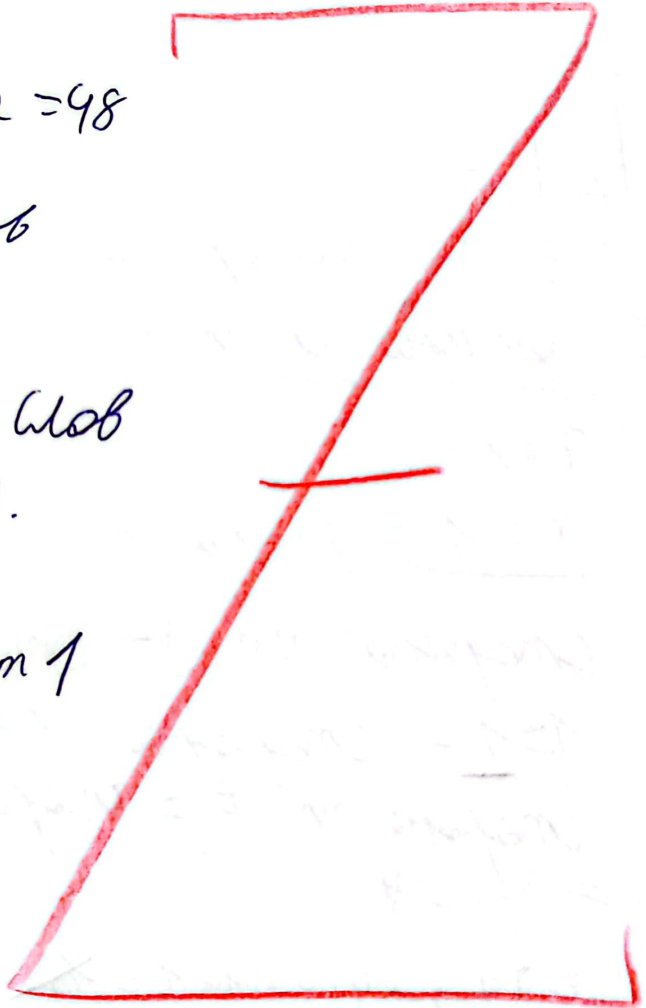 =48
в
слов
.
т 1